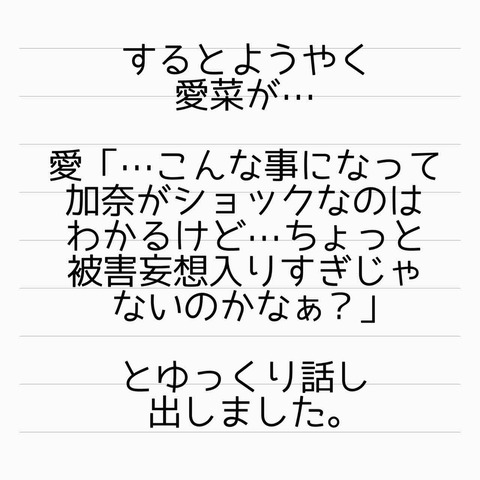 するとようやく
愛菜が…
愛「…こんな事になって
加奈がショックなのは
わかるけど…ちょっと
被害妄想入りすぎじゃ
ないのかなぁ？」
とゆっくり話し
出しました。